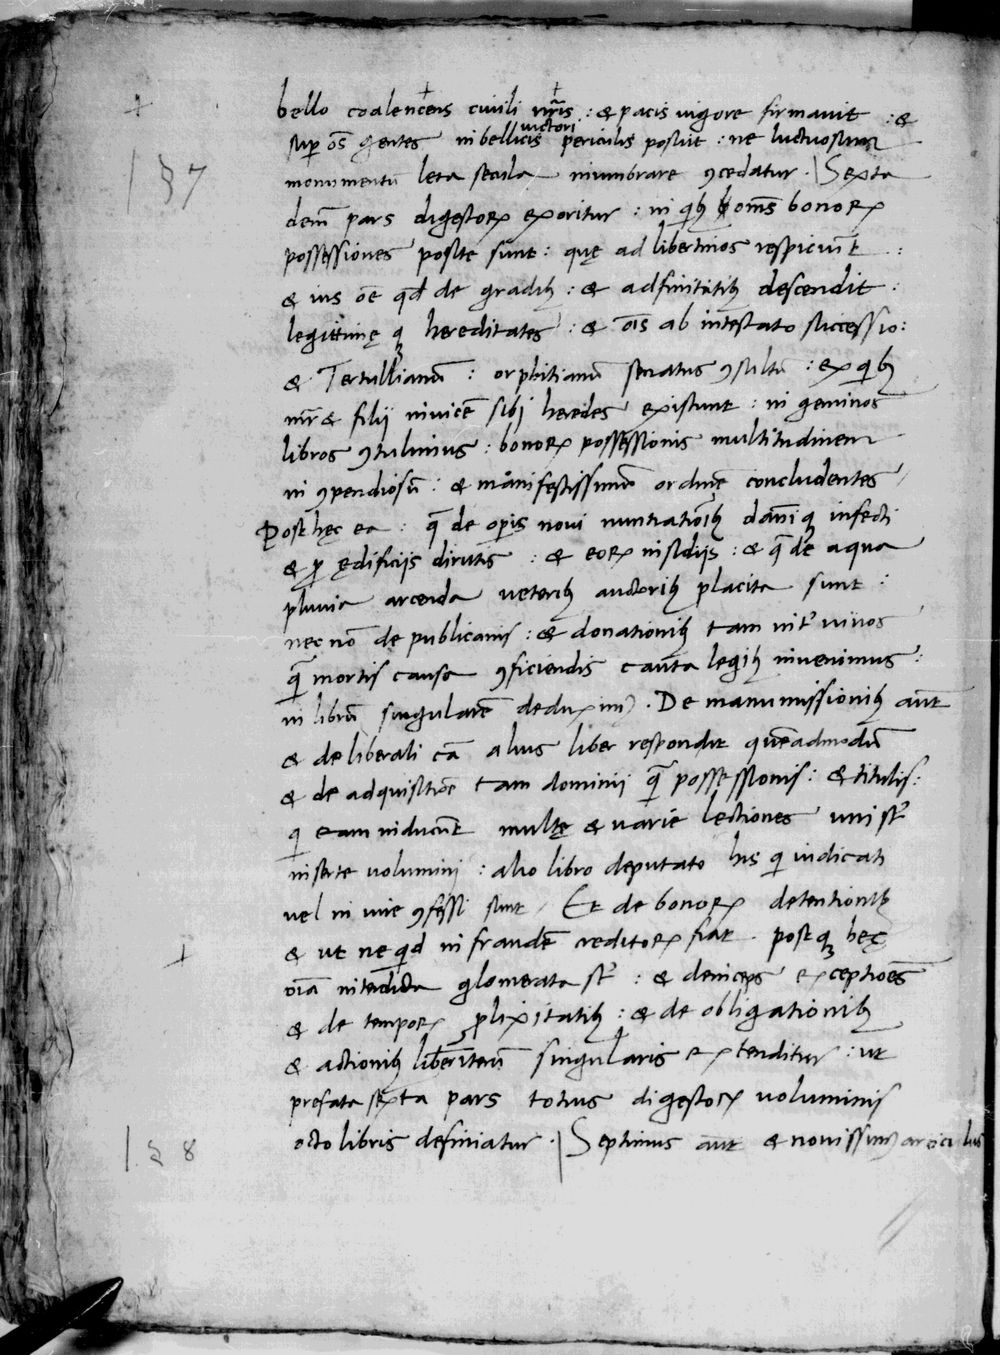 bello coalescens ciuili nr̄is : & pacis uigore firmauit : &
sup oēs gentes in bellicis uictori periculis posuit : ne luctuosum
157 monumentū leta secula inumbrare ꝯcedatur . | Sexta
dem̄ pars digestoꝝ exoritur : in qibꝫ oms bonoꝝ
possessiones posite sunt : quę ad libertinos respiciūt :
& ius oē qd de gradibꝫ : & adfinitatibꝫ descendit :
legittimęqꝫ hereditates : & oīs ab intestato successio :
& Tertullianū : orphitianū senatus ꝯsultū : ex qibꝫ
mr̄ & filij inuicē sibi heredes existunt : in geminos
libros ꝯtulimus : bonoꝝ possessionis multitudinem
in ꝯpendiosū : & manifestissimū ordinē concludentes /
Post hęc ea : q̄ de opis noui nuntiatiōibꝫ dāniqꝫ infecti
& ꝓ ędificijs dirutis : & eoꝝ insidijs : & q̄ de aqua
pluuia arcenda ueteribꝫ auctoribꝫ placita sunt :
nec nō de publicanis : & donationibꝫ tam int̄ uiuos
q̄ mortis causa ꝯficiendis cauta legibꝫ inuenimus :
in librū singularē deduximꝰ . De manumissionibꝫ aūt
& de liberali cā alius liber respondit quēadmodū
& de adquisitiōe tam dominij q̄ possessionis : & titulis :
qi eam inducūt multę & varie lectiones uni st̄
inserte volumini : alio libro deputato his qi iudicati
uel in iure ꝯfessi sunt / Et de bonoꝝ detentionibꝫ
& ut ne qid in fraudē creditoꝝ fiat . postqꝫ hęc
oīa interdicta glomerata st̄ : & deinceps exceptiōes
& de tempoꝝ ꝓlixitatibꝫ : & de obligationibꝫ
& actionibꝫ singularis extenditur : ut
prefata sexta pars totius digestoꝝ voluminis
158 octo libris definiatur . | Septimus aūt & nouissimꝰ articulus